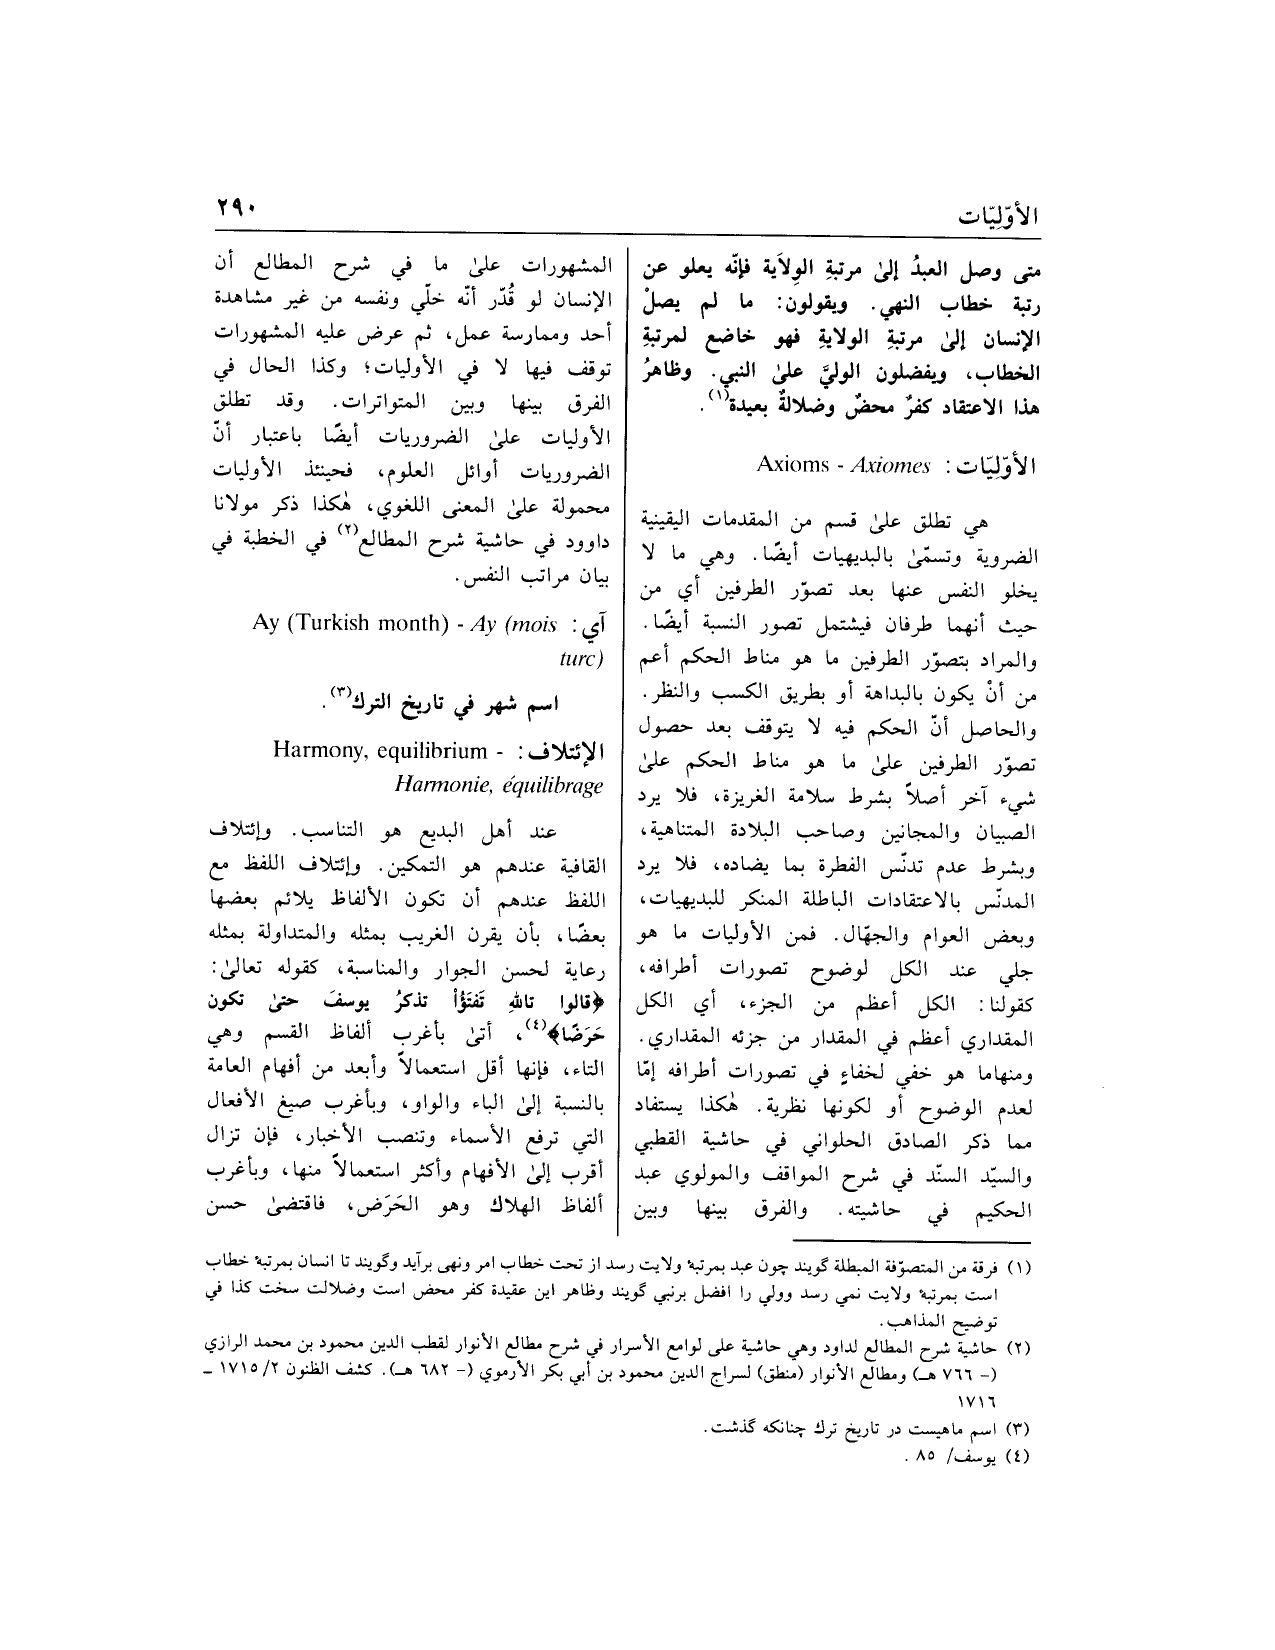 الأوّليّات
٢٩٠
متى وصل العبدُ إلىٰ مرتبةِ الوِلاَية فإنّه يعلو عن
رتبة خطاب النهي. ويقولون: ما لم يصلْ
الإنسان إلىٰ مرتبةِ الولايةِ فهو خاضع لمرتبةِ
الخطاب، ويفضلون الوليَّ علىٰ النبي. وظاهرُ
هذا الاعتقاد كفرٌ محضٌ وضلالةٌ بعيدة(١).
الأوّليّات: Axioms - Axiomes
هي تطلق علىٰ قسم من المقدمات اليقينية
الضروية وتسمّىٰ بالبديهيات أيضًا. وهي ما لا
يخلو النفس عنها بعد تصوّر الطرفين أي من
حيث أنهما طرفان فيشتمل تصور النسبة أيضًا.
والمراد بتصوّر الطرفين ما هو مناط الحكم أعم
من أنْ يكون بالبداهة أو بطريق الكسب والنظر.
والحاصل أنّ الحكم فيه لا يتوقف بعد حصول
تصوّر الطرفين علىٰ ما هو مناط الحكم علىٰ
شيء آخر أصلاً بشرط سلامة الغريزة، فلا يرد
الصبيان والمجانين وصاحب البلادة المتناهية،
وبشرط عدم تدنّس الفطرة بما يضاده، فلا يرد
المدنّس بالاعتقادات الباطلة المنكر للبديهيات،
وبعض العوام والجهّال. فمن الأوليات ما هو
جلي عند الكل لوضوح تصورات أطرافه،
كقولنا: الكل أعظم من الجزء، أي الكل
المقداري أعظم في المقدار من جزئه المقداري.
ومنهاما هو خفي لخفاءٍ في تصورات أطرافه إمّا
لعدم الوضوح أو لكونها نظرية. هٰكذا يستفاد
مما ذكر الصادق الحلواني في حاشية القطبي
والسيّد السنّد في شرح المواقف والمولوي عبد
الحكيم في حاشيته. والفرق بينها وبين
المشهورات علىٰ ما في شرح المطالع أن
الإنسان لو قُدّر أنّه خلّي ونفسه من غير مشاهدة
أحد وممارسة عمل، ثم عرض عليه المشهورات
توقف فيها لا في الأوليات؛ وكذا الحال في
الفرق بينها وبين المتواترات. وقد تطلق
الأوليات علىٰ الضروريات أيضًا باعتبار أنّ
الضروريات أوائل العلوم، فحينئذ الأوليات
محمولة علىٰ المعنى اللغوي، هٰكذا ذكر مولانا
داوود في حاشية شرح المطالع(٢) في الخطبة في
بيان مراتب النفس.
آي: Ay (Turkish month) - Ay (mois
turc)
اسم شهر في تاريخ الترك(٣).
الإئتلاف: Harmony, equilibrium -
Harmonie, équilibrage
عند أهل البديع هو التناسب. وإئتلاف
القافية عندهم هو التمكين. وإئتلاف اللفظ مع
اللفظ عندهم أن تكون الألفاظ يلائم بعضها
بعضًا، بأن يقرن الغريب بمثله والمتداولة بمثله
رعاية لحسن الجوار والمناسبة، كقوله تعالىٰ:
﴿قالوا تاللهِ تَفتَؤُأ تذكرُ يوسفَ حتىٰ تكون
حَرَضًا﴾(٤)، أتىٰ بأغرب ألفاظ القسم وهي
التاء، فإنها أقل استعمالاً وأبعد من أفهام العامة
بالنسبة إلىٰ الباء والواو، وبأغرب صيغ الأفعال
التي ترفع الأسماء وتنصب الأخبار، فإن تزال
أقرب إلىٰ الأفهام وأكثر استعمالاً منها، وبأغرب
ألفاظ الهلاك وهو الحَرَض، فاقتضىٰ حسن
(١) فرقة من المتصوّفة المبطلة گويند چون عبد بمرتبهٔ ولايت رسد از تحت خطاب امر ونهى برآيد وگويند تا انسان بمرتبهٔ خطاب
است بمرتبهٔ ولايت نمى رسد وولي را افضل برنبي گويند وظاهر اين عقيدة كفر محض است وضلالت سخت كذا في
توضيح المذاهب.
(٢) حاشية شرح المطالع لداود وهي حاشية على لوامع الأسرار في شرح مطالع الأنوار لقطب الدين محمود بن محمد الرازي
(- ٧٦٦ هـ) ومطالع الأنوار (منطق) لسراج الدين محمود بن أبي بكر الأرموي (- ٦٨٢ هـ). كشف الظنون ٢/ ١٧١٥ ـ
١٧١٦
(٣) اسم ماهيست در تاريخ ترك چنانكه گذشت.
(٤) يوسف/ ٨٥ .